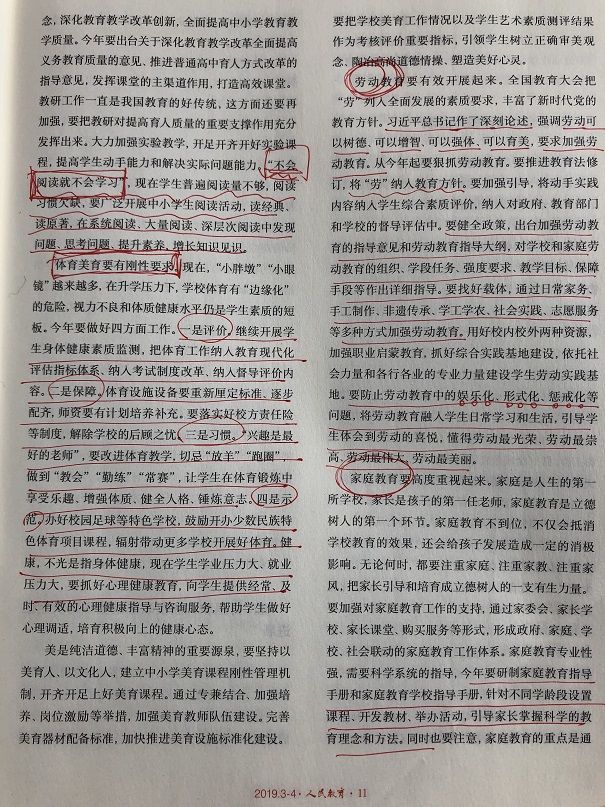 念，深化教育教学改革创新，全面提高中小学教育教
学质量。今年要出台关于深化教育教学改革全面提高
义务教育质量的意见、推进普通高中育人方式改革的
指导意见，发挥课堂的主渠道作用，打造高效课堂。
教研工作一直是我国教育的好传统，这方面还要再
加强，要把教研对提高育人质量的重要支撑作用充分
发挥出来。大力加强实验教学，开足开齐开好实验课
程，提高学生动手能力和解决实际问题能力。“不会
阅读就不会学习”，现在学生普遍阅读量不够，阅读
习惯欠缺，要广泛开展中小学生阅读活动，读经典、
读原著，在系统阅读、大量阅读、深层次阅读中发现
问题、思考问题、提升素养，增长知识见识。
体育美育要有刚性要求。现在，“小胖墩”“小眼
镜”越来越多，在升学压力下，学校体育有“边缘化”
的危险，视力不良和体质健康水平仍是学生素质的短
板。今年要做好四方面工作。一是评价。继续开展学
生身体健康素质监测，把体育工作纳入教育现代化
评估指标体系、纳入考试制度改革、纳入督导评价内
容。二是保障。体育设施设备要重新厘定标准、逐步
配齐，师资要有计划培养补充。要落实好校方责任险
等制度，解除学校的后顾之忧。三是习惯。“兴趣是最
好的老师”，要改进体育教学，切忌“放羊”“跑圈”，
做到“教会”“勤练”“常赛”，让学生在体育锻炼中
享受乐趣、增强体质、健全人格、锤炼意志。四是示
范。办好校园足球等特色学校，鼓励开办少数民族特
色体育项目课程，辐射带动更多学校开展好体育。健
康，不光是指身体健康，现在学生学业压力大、就业
压力大，要抓好心理健康教育，向学生提供经常、及
时、有效的心理健康指导与咨询服务，帮助学生做好
心理调适，培育积极向上的健康心态。
美是纯洁道德、丰富精神的重要源泉，要坚持以
美育人、以文化人，建立中小学美育课程刚性管理机
制，开齐开足上好美育课程。通过专兼结合、加强培
养、岗位激励等举措，加强美育教师队伍建设。完善
美育器材配备标准，加快推进美育设施标准化建设。
要把学校美育工作情况以及学生艺术素质测评结果
作为考核评价重要指标，引领学生树立正确审美观
念、陶冶高尚道德情操、塑造美好心灵。
劳动教育要有效开展起来。全国教育大会把
“劳”列入全面发展的素质要求，丰富了新时代党的
教育方针。习近平总书记作了深刻论述，强调劳动可
以树德、可以增智、可以强体、可以育美，要求加强劳
动教育。从今年起要狠抓劳动教育。要推进教育法修
订，将“劳”纳入教育方针。要加强引导，将动手实践
内容纳入学生综合素质评价，纳入对政府、教育部门
和学校的督导评估中。要健全政策，出台加强劳动教
育的指导意见和劳动教育指导大纲，对学校和家庭劳
动教育的组织、学段任务、强度要求、教学目标、保障
手段等作出详细指导。要找好载体，通过日常家务、
手工制作、非遗传承、学工学农、社会实践、志愿服务
等多种方式加强劳动教育。用好校内校外两种资源，
加强职业启蒙教育，抓好综合实践基地建设，依托社
会力量和各行各业的专业力量建设学生劳动实践基
地。要防止劳动教育中的娱乐化、形式化、惩戒化等
问题，将劳动教育融入学生日常学习和生活，引导学
生体会到劳动的喜悦，懂得劳动最光荣、劳动最崇
高、劳动最伟大、劳动最美丽。
家庭教育要高度重视起来。家庭是人生的第一
所学校，家长是孩子的第一任老师，家庭教育是立德
树人的第一个环节。家庭教育不到位，不仅会抵消
学校教育的效果，还会给孩子发展造成一定的消极
影响。无论何时，都要注重家庭、注重家教、注重家
风，把家长引导和培育成立德树人的一支有生力量。
要加强对家庭教育工作的支持，通过家委会、家长学
校、家长课堂、购买服务等形式，形成政府、家庭、学
校、社会联动的家庭教育工作体系。家庭教育专业性
强，需要科学系统的指导，今年要研制家庭教育指导
手册和家庭教育学校指导手册，针对不同学龄段设置
课程、开发教材、举办活动，引导家长掌握科学的教
育理念和方法。同时也要注意，家庭教育的重点是通
2019.3-4·人民教育·11